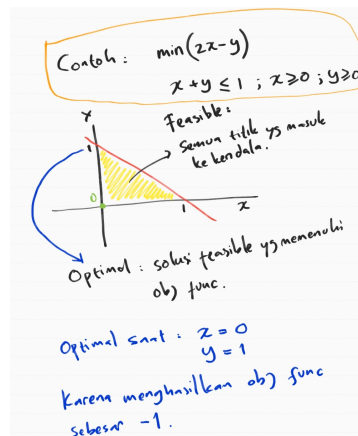 Contoh : min(2x-y)
x + y ≤ 1 ; x ≥ 0 ; y ≥ 0
Y
Feasible :
Semua titik yg masuk
ke kendala.
1
0
1
x
Optimal : solusi feasible yg memenuhi
obj func.
Optimal saat : x = 0
y = 1
Karena menghasilkan obj func
sebesar -1.